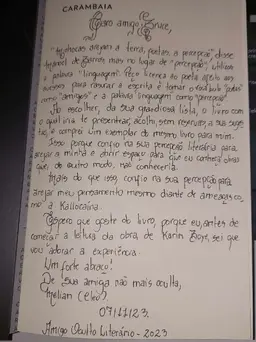 CARAMBAIA
Caro amigo Bruce,
"Minhocas arejam a terra, poetas a percepção", disse
Manoel de Barros, mas no lugar de "percepção", utilizou
a palavra "linguagem". Peço licença ao poeta após as
vezes para rasurar a escrita e tomar o vocábulo "poetas"
como "amigos" e a palavra linguagem como "percepção".
Ao escolher, da sua grandiosa lista, o livro com
o qual iria te presentear, acolhi, sem reservas, a sua suges-
tão, e comprei um exemplar do mesmo livro para mim.
Isso porque confio na sua percepção literária para
arejar a minha e abrir espaço para que eu conheça obras
que, de outro modo, não conheceria.
Mais do que isso, confio na sua percepção para
arejar meu pensamento mesmo diante de ameaças co-
mo a Kallocaína.
Espero que goste do livro, porque eu, antes de
começar a leitura da obra de Karin Boye, sei que
vou adorar a experiência.
Um forte abraço!
De sua amiga não mais oculta,
07/11/23.
Amigo Oculto Literário - 2023